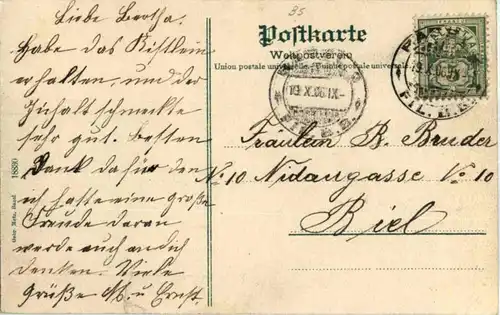 35
Liebe Bertha.
Habe das Kistlein
erhalten, und der
Inhalt schmeckte
sehr gut. Besten
Dank dafür, denn
ich hatte eine große
Freude daran
werde auch an dich
denken. Viele
Grüße M. u. Ernst.
Postkarte
Weltpostverein
Union postale universelle - Unione postale universale
19.X.06.IX-
Fräulein B. Bruder
No 10 Nidaugasse No 10
Biel
18880
Gebr. Metz, Basel